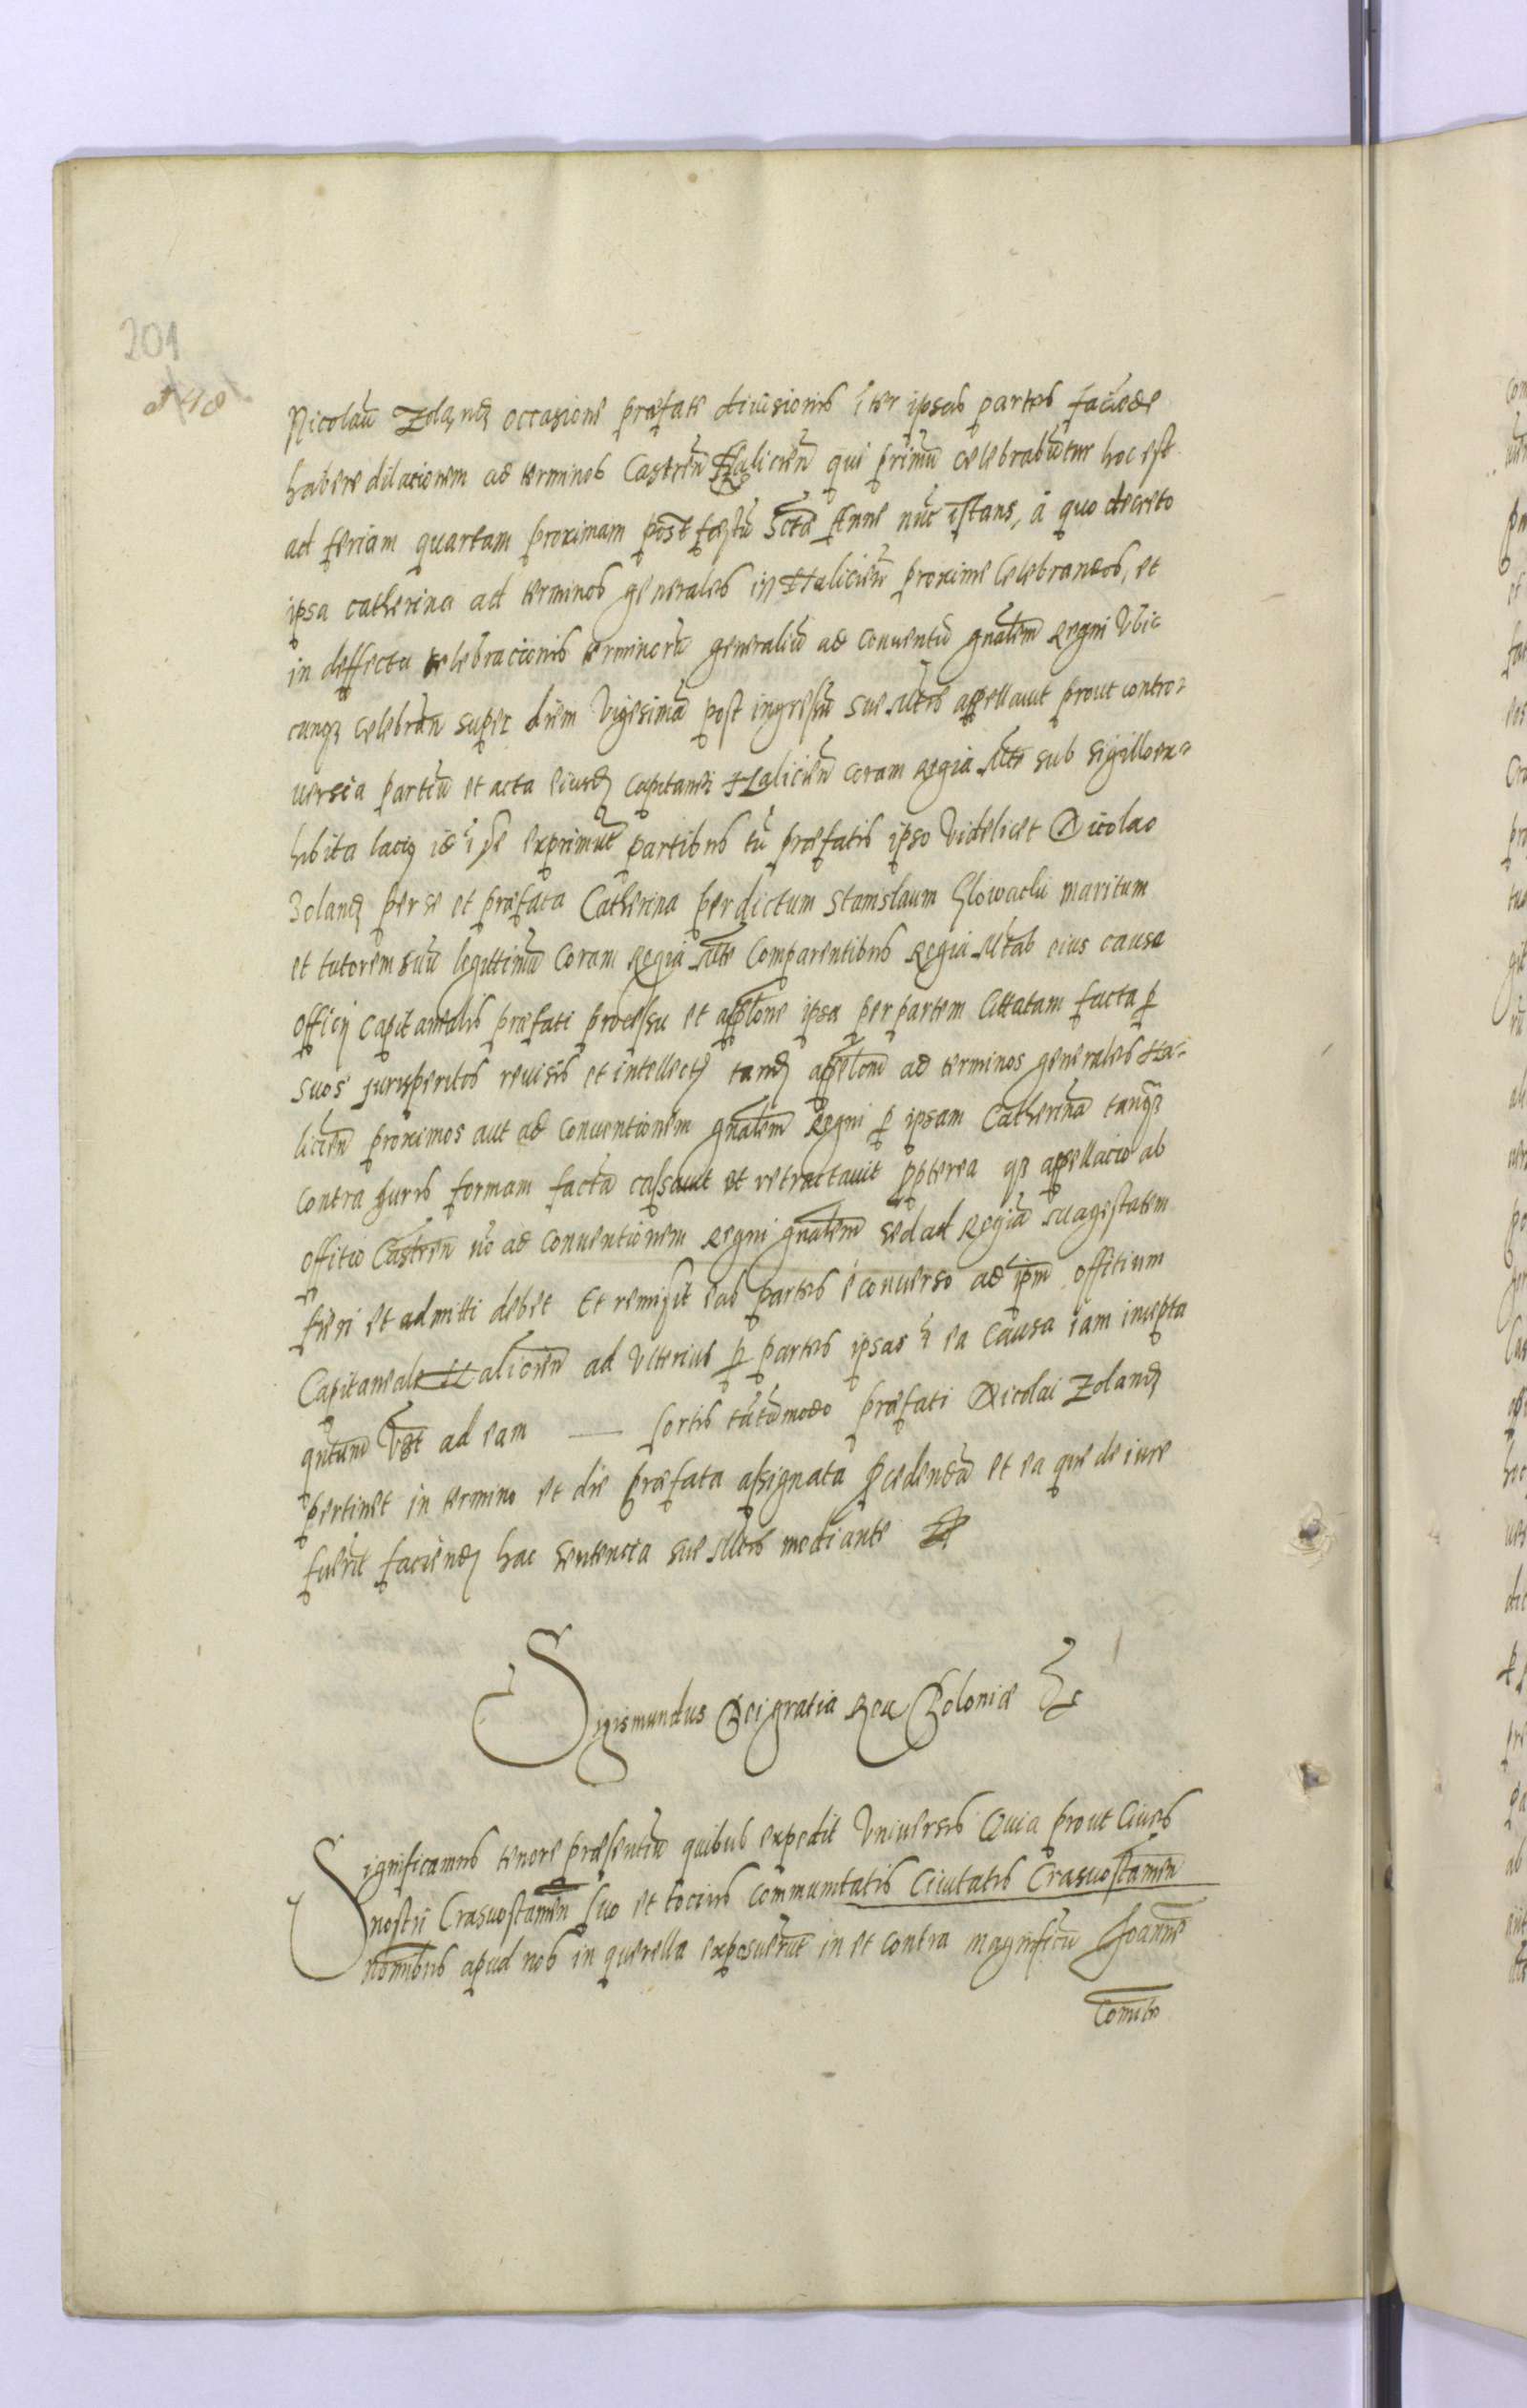 201
Nicolaū Zolanȝ occasione præfate diuisionis īter ipsas partes faciēde
habere dilationem ad terminos Castrēn Halicień qui primū celebrabūtur hoc est
ad feriam quartam proximam post fæstū Sctæ Anne nūc īstans, à quo decreto
ipsa Catherina ad terminos generales in Halicień proxime celebrandos, et
in deffectu celebracionis terminorū generaliū ad conuentū gnalem Regni Vbic
cunqȝ celebrań super diem Vigesimā post ingressū suæ Mtis appellauit prout contro-
uersia partiū et acta eiusdē Capitanei Halicień coram Regia Mte sub sigillo ex-
hibita laciꝯ id ī se exprimūt partibus tū præfatis ipso videlicet Nicolao
Zolanȝ per se et præfata Catherina per dictum Stanislaum Glowacki maritum
et tutorem suū legittimū Coram Regia Mte Comparentibus Regia Mtas eius causa
officij Capitanealis præfati processu et appłone ipsa per partem Cittatam facta ꝑ
suos Jurisperitos reuisis et intellectꝭ tandē appłonē ad terminos generales Ha-
licień proximos aut ad Conuentionem gnalem Regni ꝑ ipsam Catherinā tanqȝ
contra Juris formam factā cassauit et retractauit ꝓpterea qȝ appellacio ab
offitio Castreń nō ad Conuentionem Regni gnalem sed ad Regiā Magestatem
fieri et admitti debet Et remisit eas partes è conuerso ad ipm offitium
Capitaneale Halicień ad Vlterius ꝑ partes ipsas ī ea Causa iam incepta
qntum ad eam — sortis tātūmodo præfati Nicolai Zolanȝ
pertinet in termino et die præfata assignata ꝓcedendū et ea que de iure
fuerit faciendē hac sentencia sue Mtis mediante
Sigismundus Dei gratia Rex Poloniæ Etc
Significamus tenore præsentiū quibus expedit Vniuersis Quia prout Ciues
nostri Crasnostamień suo et tocius Communitatis Ciuitatis Crasnostamień
nominibus apud nos in querella exposuerūt in et contra magnificū Joanne
Comite